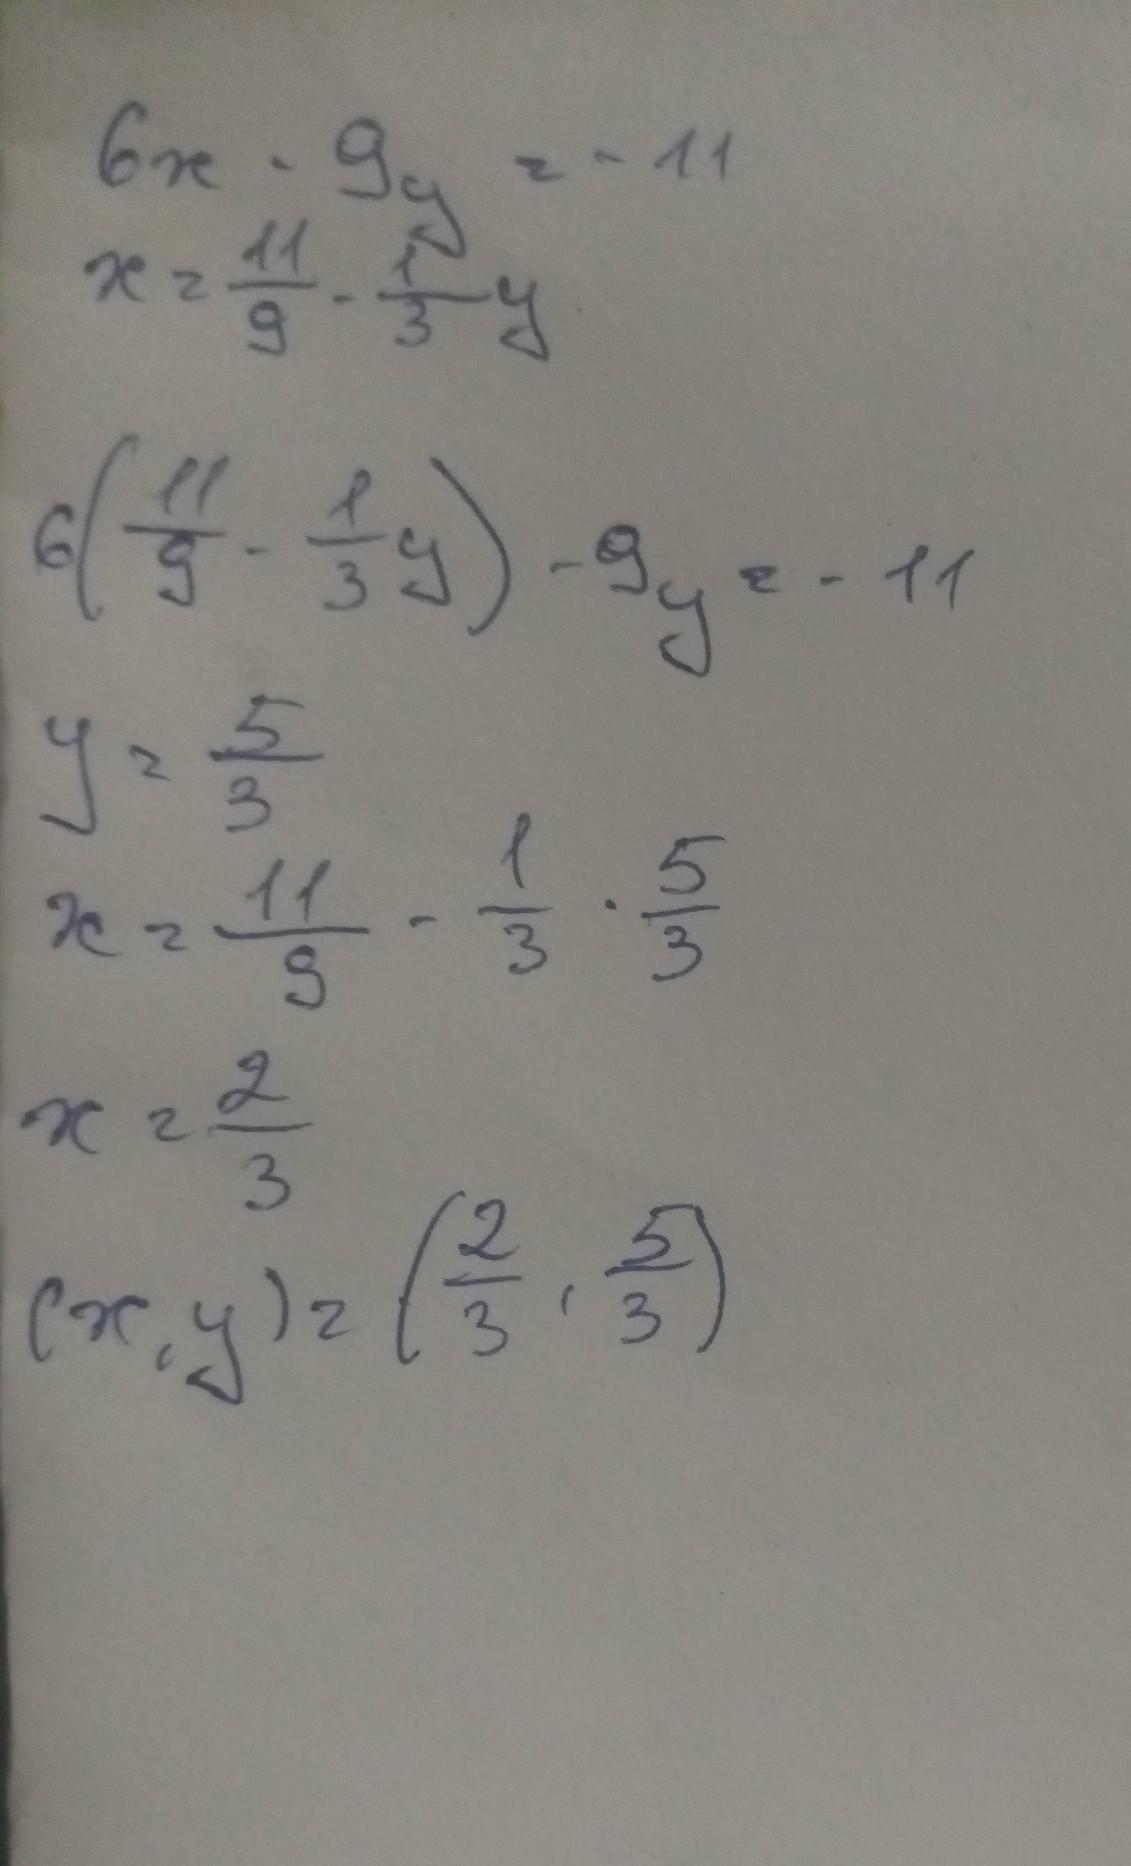 6x - 9y = -11
x = 11/9 - 1/3 y
6(11/9 - 1/3 y) - 9y = -11
y = 5/3
x = 11/9 - 1/3 · 5/3
x = 2/3
(x, y) = (2/3, 5/3)